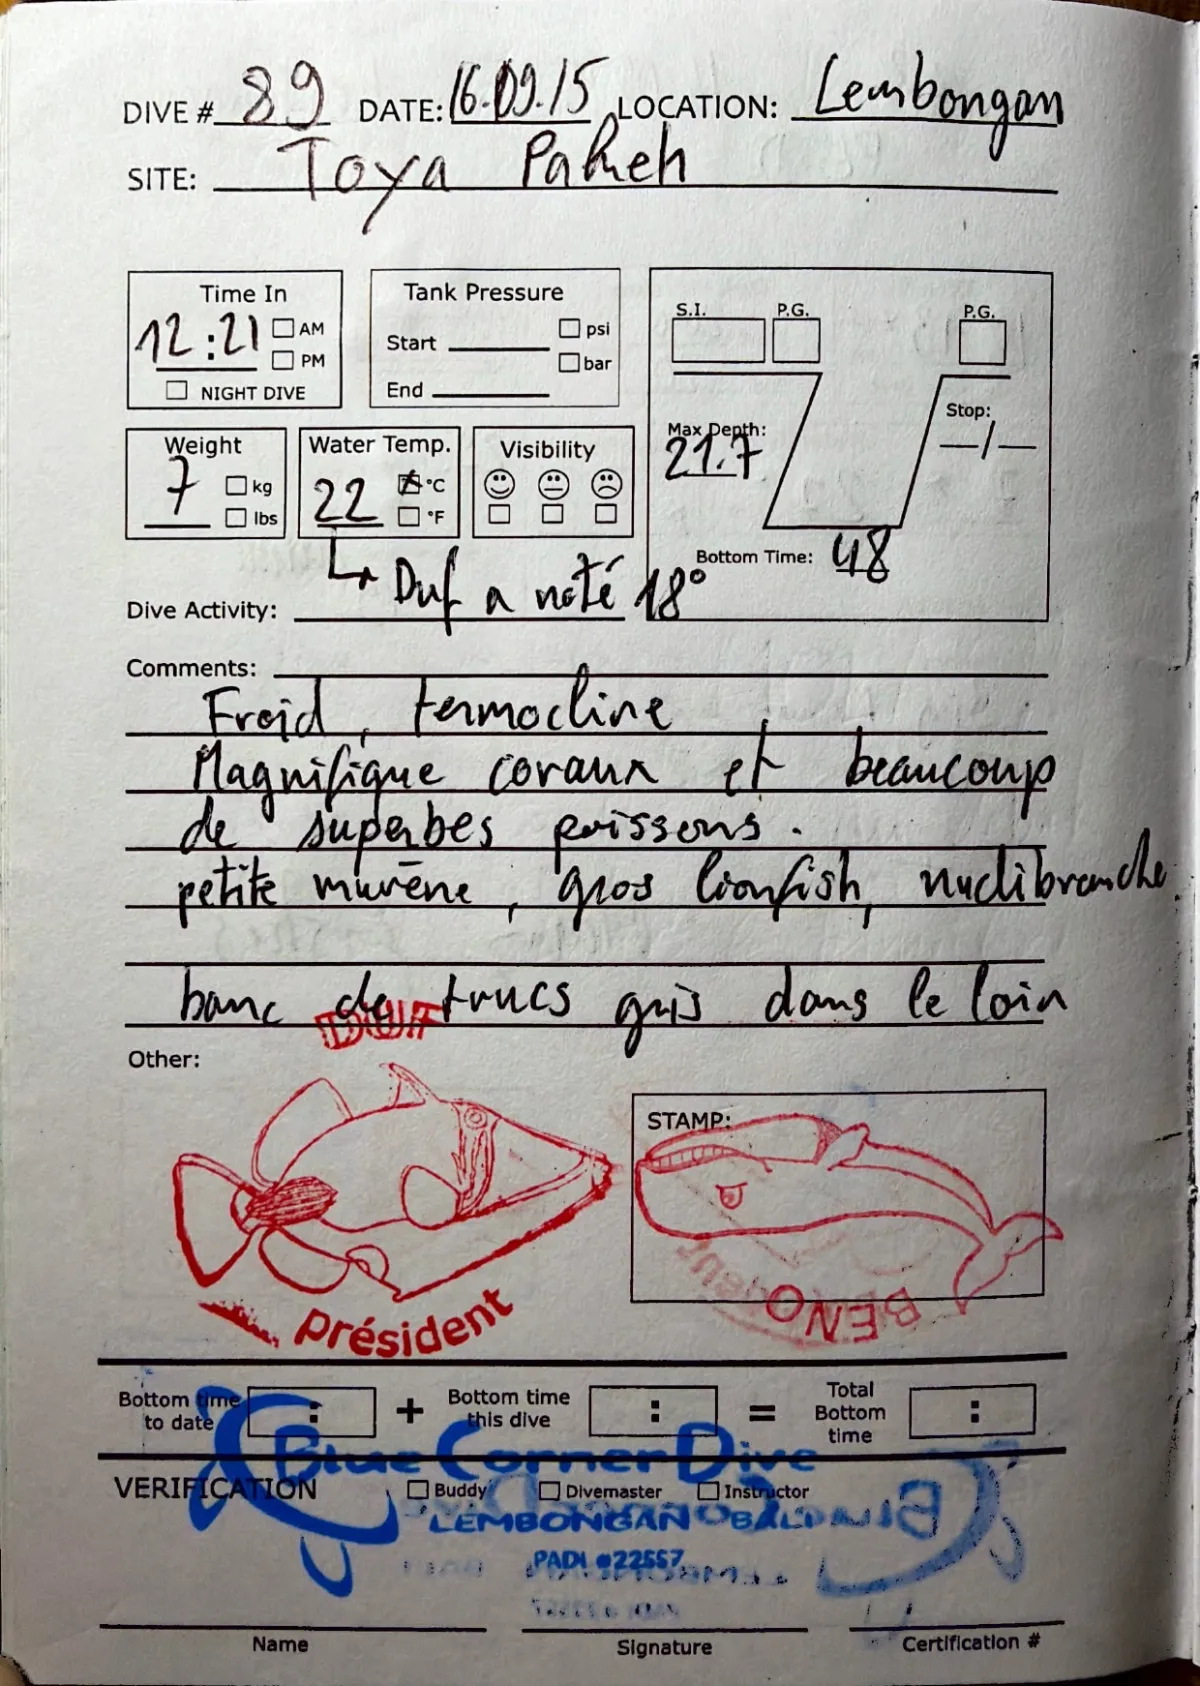 DIVE # 89 DATE: 16.09.15 LOCATION: Lembongan
SITE: Toya Pakeh
Time In
12:21 AM
PM
NIGHT DIVE
Tank Pressure
Start psi
bar
End
S.I. P.G. P.G.
Max Depth:
21.7
Stop:
/
Bottom Time: 48
Weight
7 kg
lbs
Water Temp.
22 °C
°F
Visibility
Duf a noté 18°
Dive Activity:
Comments:
Froid, termocline
Magnifique coraux et beaucoup
de superbes poissons.
petite murène, gros lionfish, nudibranche
banc de trucs gris dans le loin
DUF
Other:
Président
STAMP:
BENO
Bottom time
to date : + Bottom time
this dive : = Total
Bottom
time :
Blue Corner Dive
VERIFICATION Buddy Divemaster Instructor
LEMBONGAN BALI
PADI #22557
Name Signature Certification #